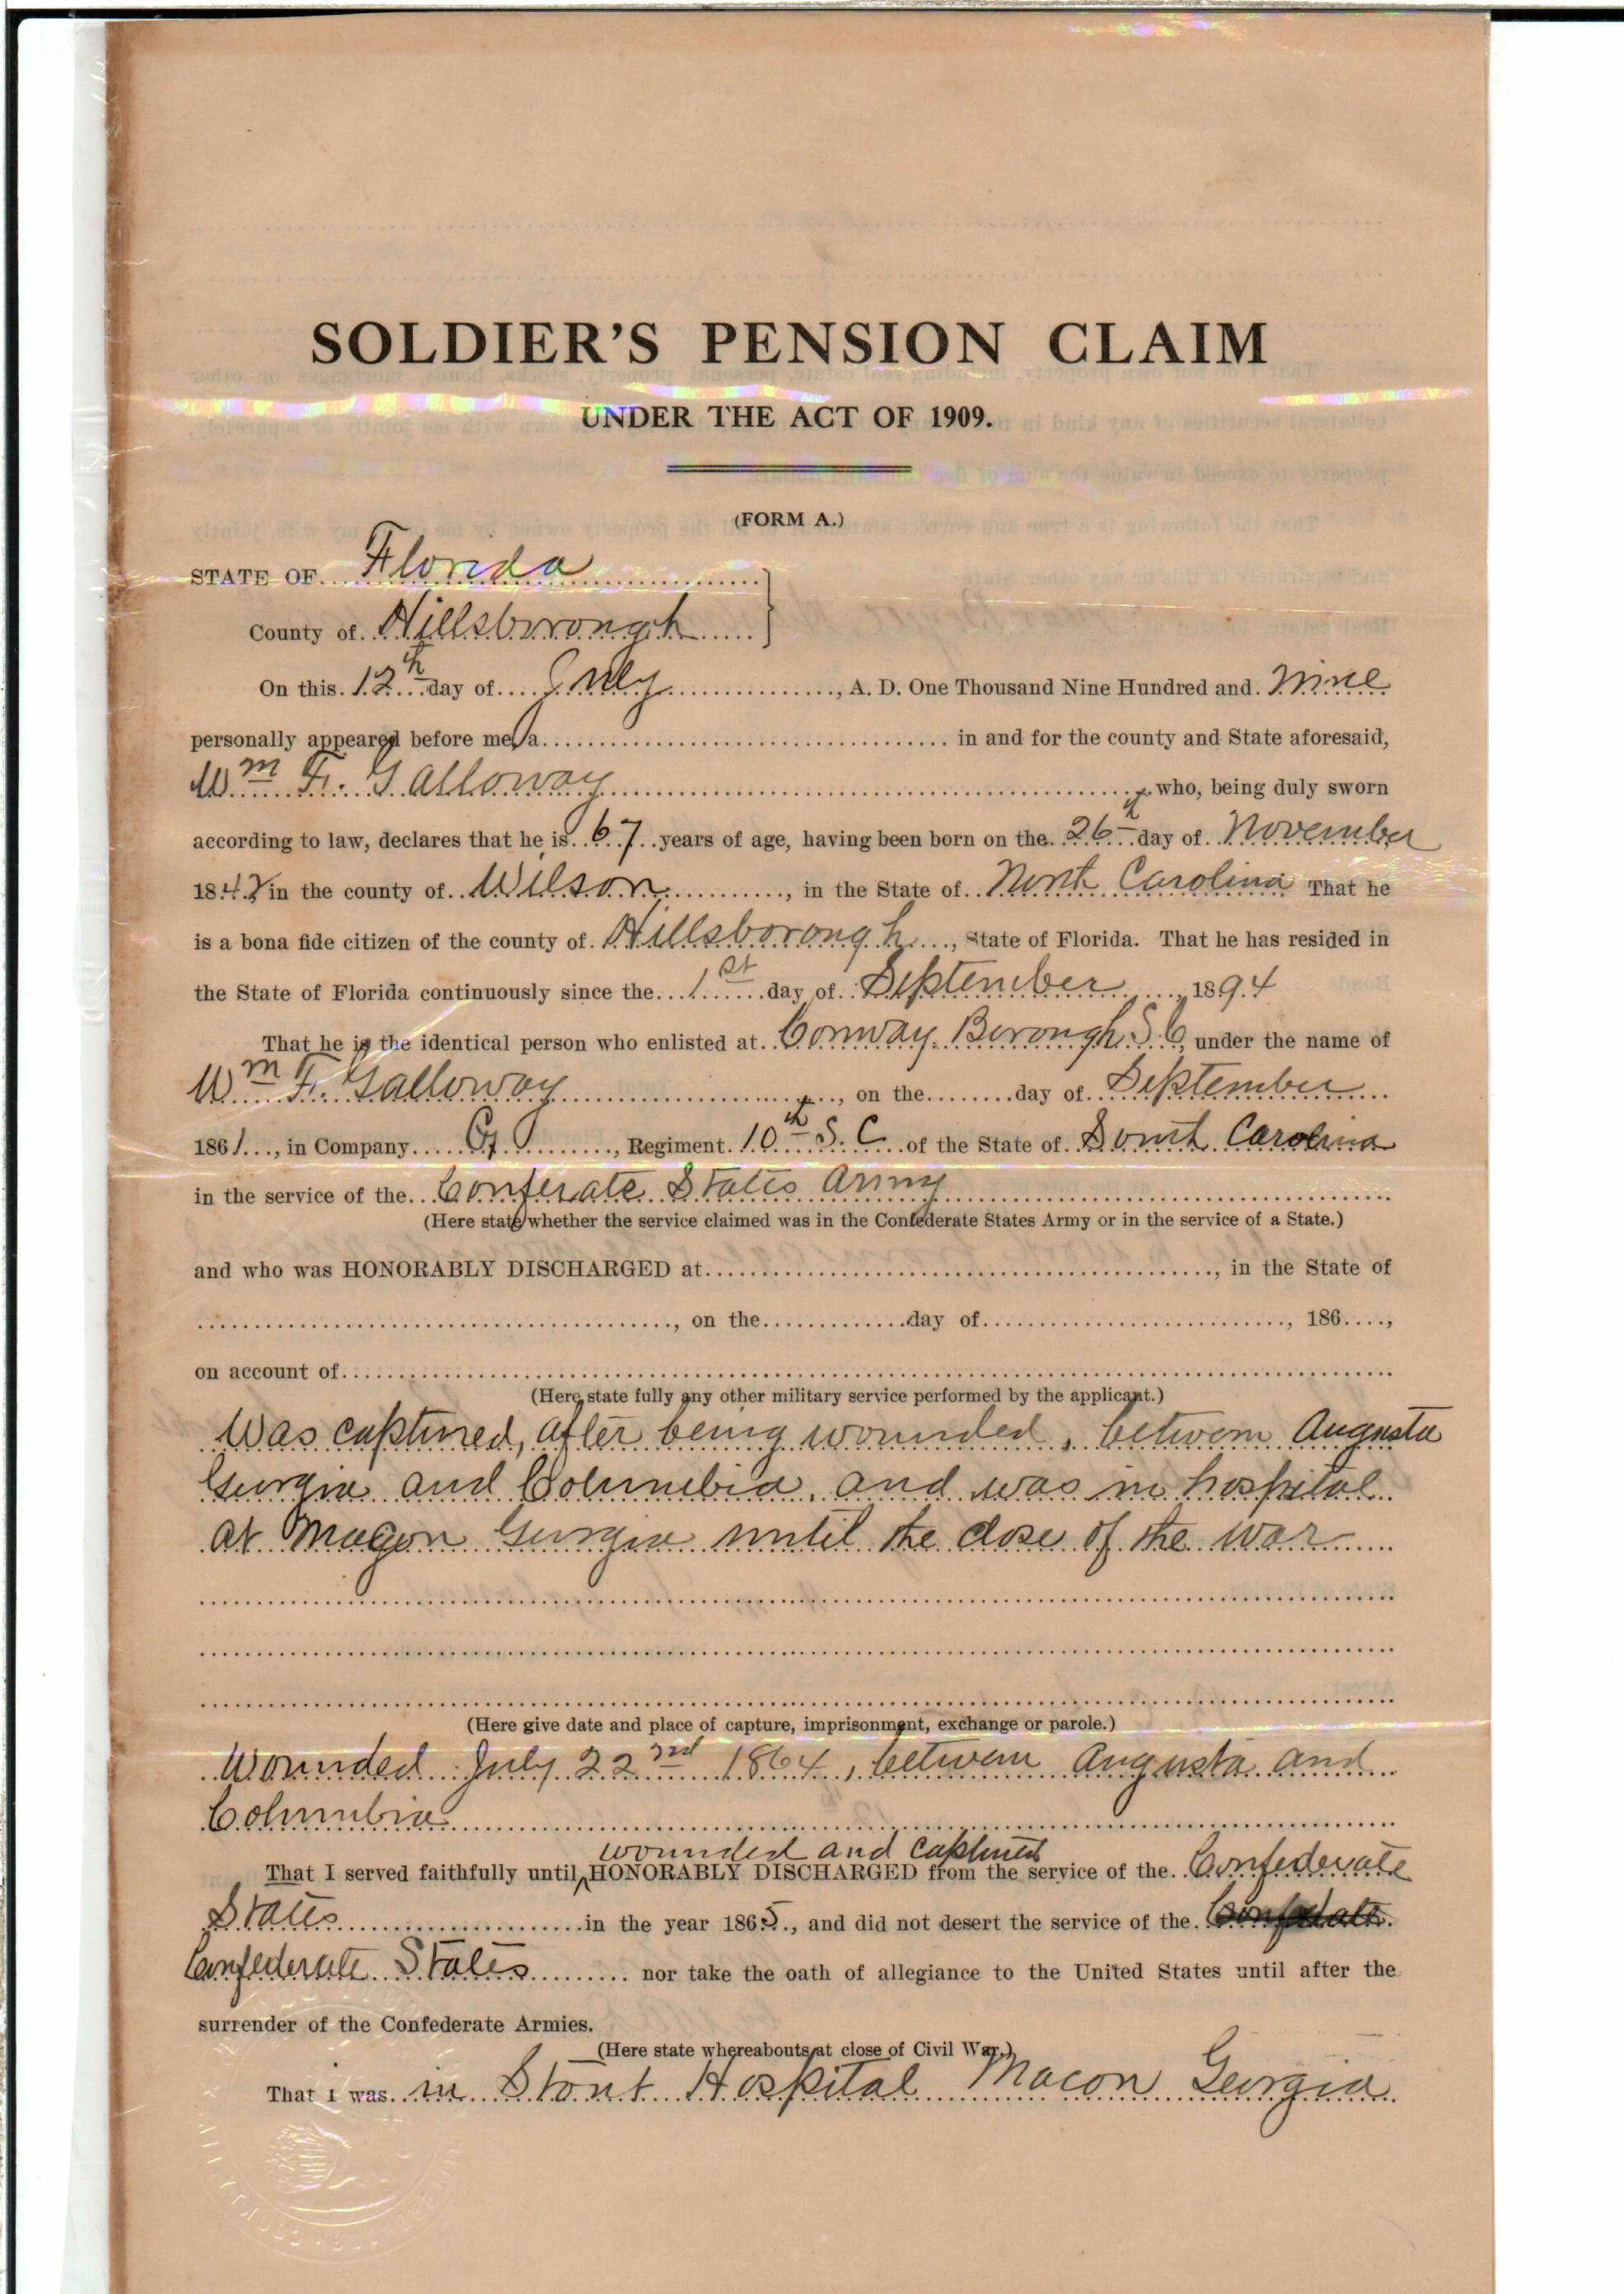 SOLDIER'S PENSION CLAIM
UNDER THE ACT OF 1909.
(FORM A.)
STATE OF Florida
County of Hillsborough
On this 12th day of July, A. D. One Thousand Nine Hundred and Nine
personally appeared before me, a in and for the county and State aforesaid,
Wm F. Galloway who, being duly sworn
according to law, declares that he is 67 years of age, having been born on the 26th day of November
184 in the county of Wilson, in the State of North Carolina That he
is a bona fide citizen of the county of Hillsborough, State of Florida. That he has resided in
the State of Florida continuously since the 1st day of September, 1894
That he is the identical person who enlisted at Conway Borough S C, under the name of
Wm F. Galloway, on the day of September
1861, in Company G, Regiment 10th S. C. of the State of South Carolina
in the service of the Conferate States Army
(Here state whether the service claimed was in the Confederate States Army or in the service of a State.)
and who was HONORABLY DISCHARGED at, in the State of
, on the day of, 186,
on account of
(Here state fully any other military service performed by the applicant.)
Was captured, after being wounded, between Augusta
Georgia and Columbia, and was in hospital
at Macon Georgia until the close of the war
(Here give date and place of capture, imprisonment, exchange or parole.)
Wounded July 22nd 1864, between Augusta and
Columbia
wounded and captured
That I served faithfully until HONORABLY DISCHARGED from the service of the Confederate
States in the year 1865, and did not desert the service of the
Confederate States nor take the oath of allegiance to the United States until after the
surrender of the Confederate Armies.
(Here state whereabouts at close of Civil War.)
That I was in Stout Hospital Macon Georgia